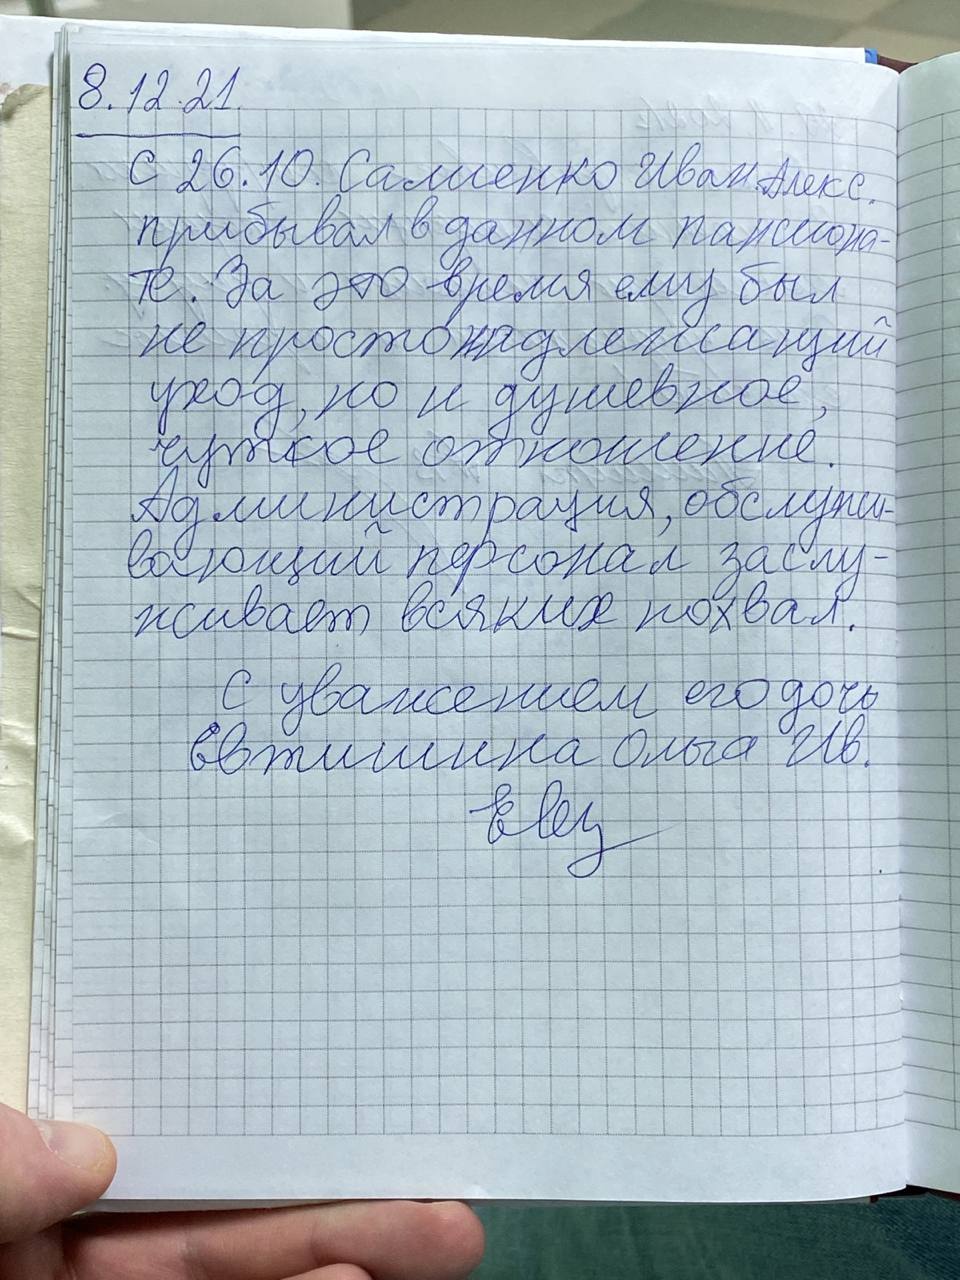 8.12.21.
С 26.10. Салиенко Иван Алекс.
прибывал в данном пансиона-
те. За это время ему был
не просто надлежащий
уход, но и душевное,
чуткое отношение.
Администрация, обслужи-
вающий персонал заслу-
живает всяких похвал.
С уважением его дочь
Евтишина Ольга Ив.